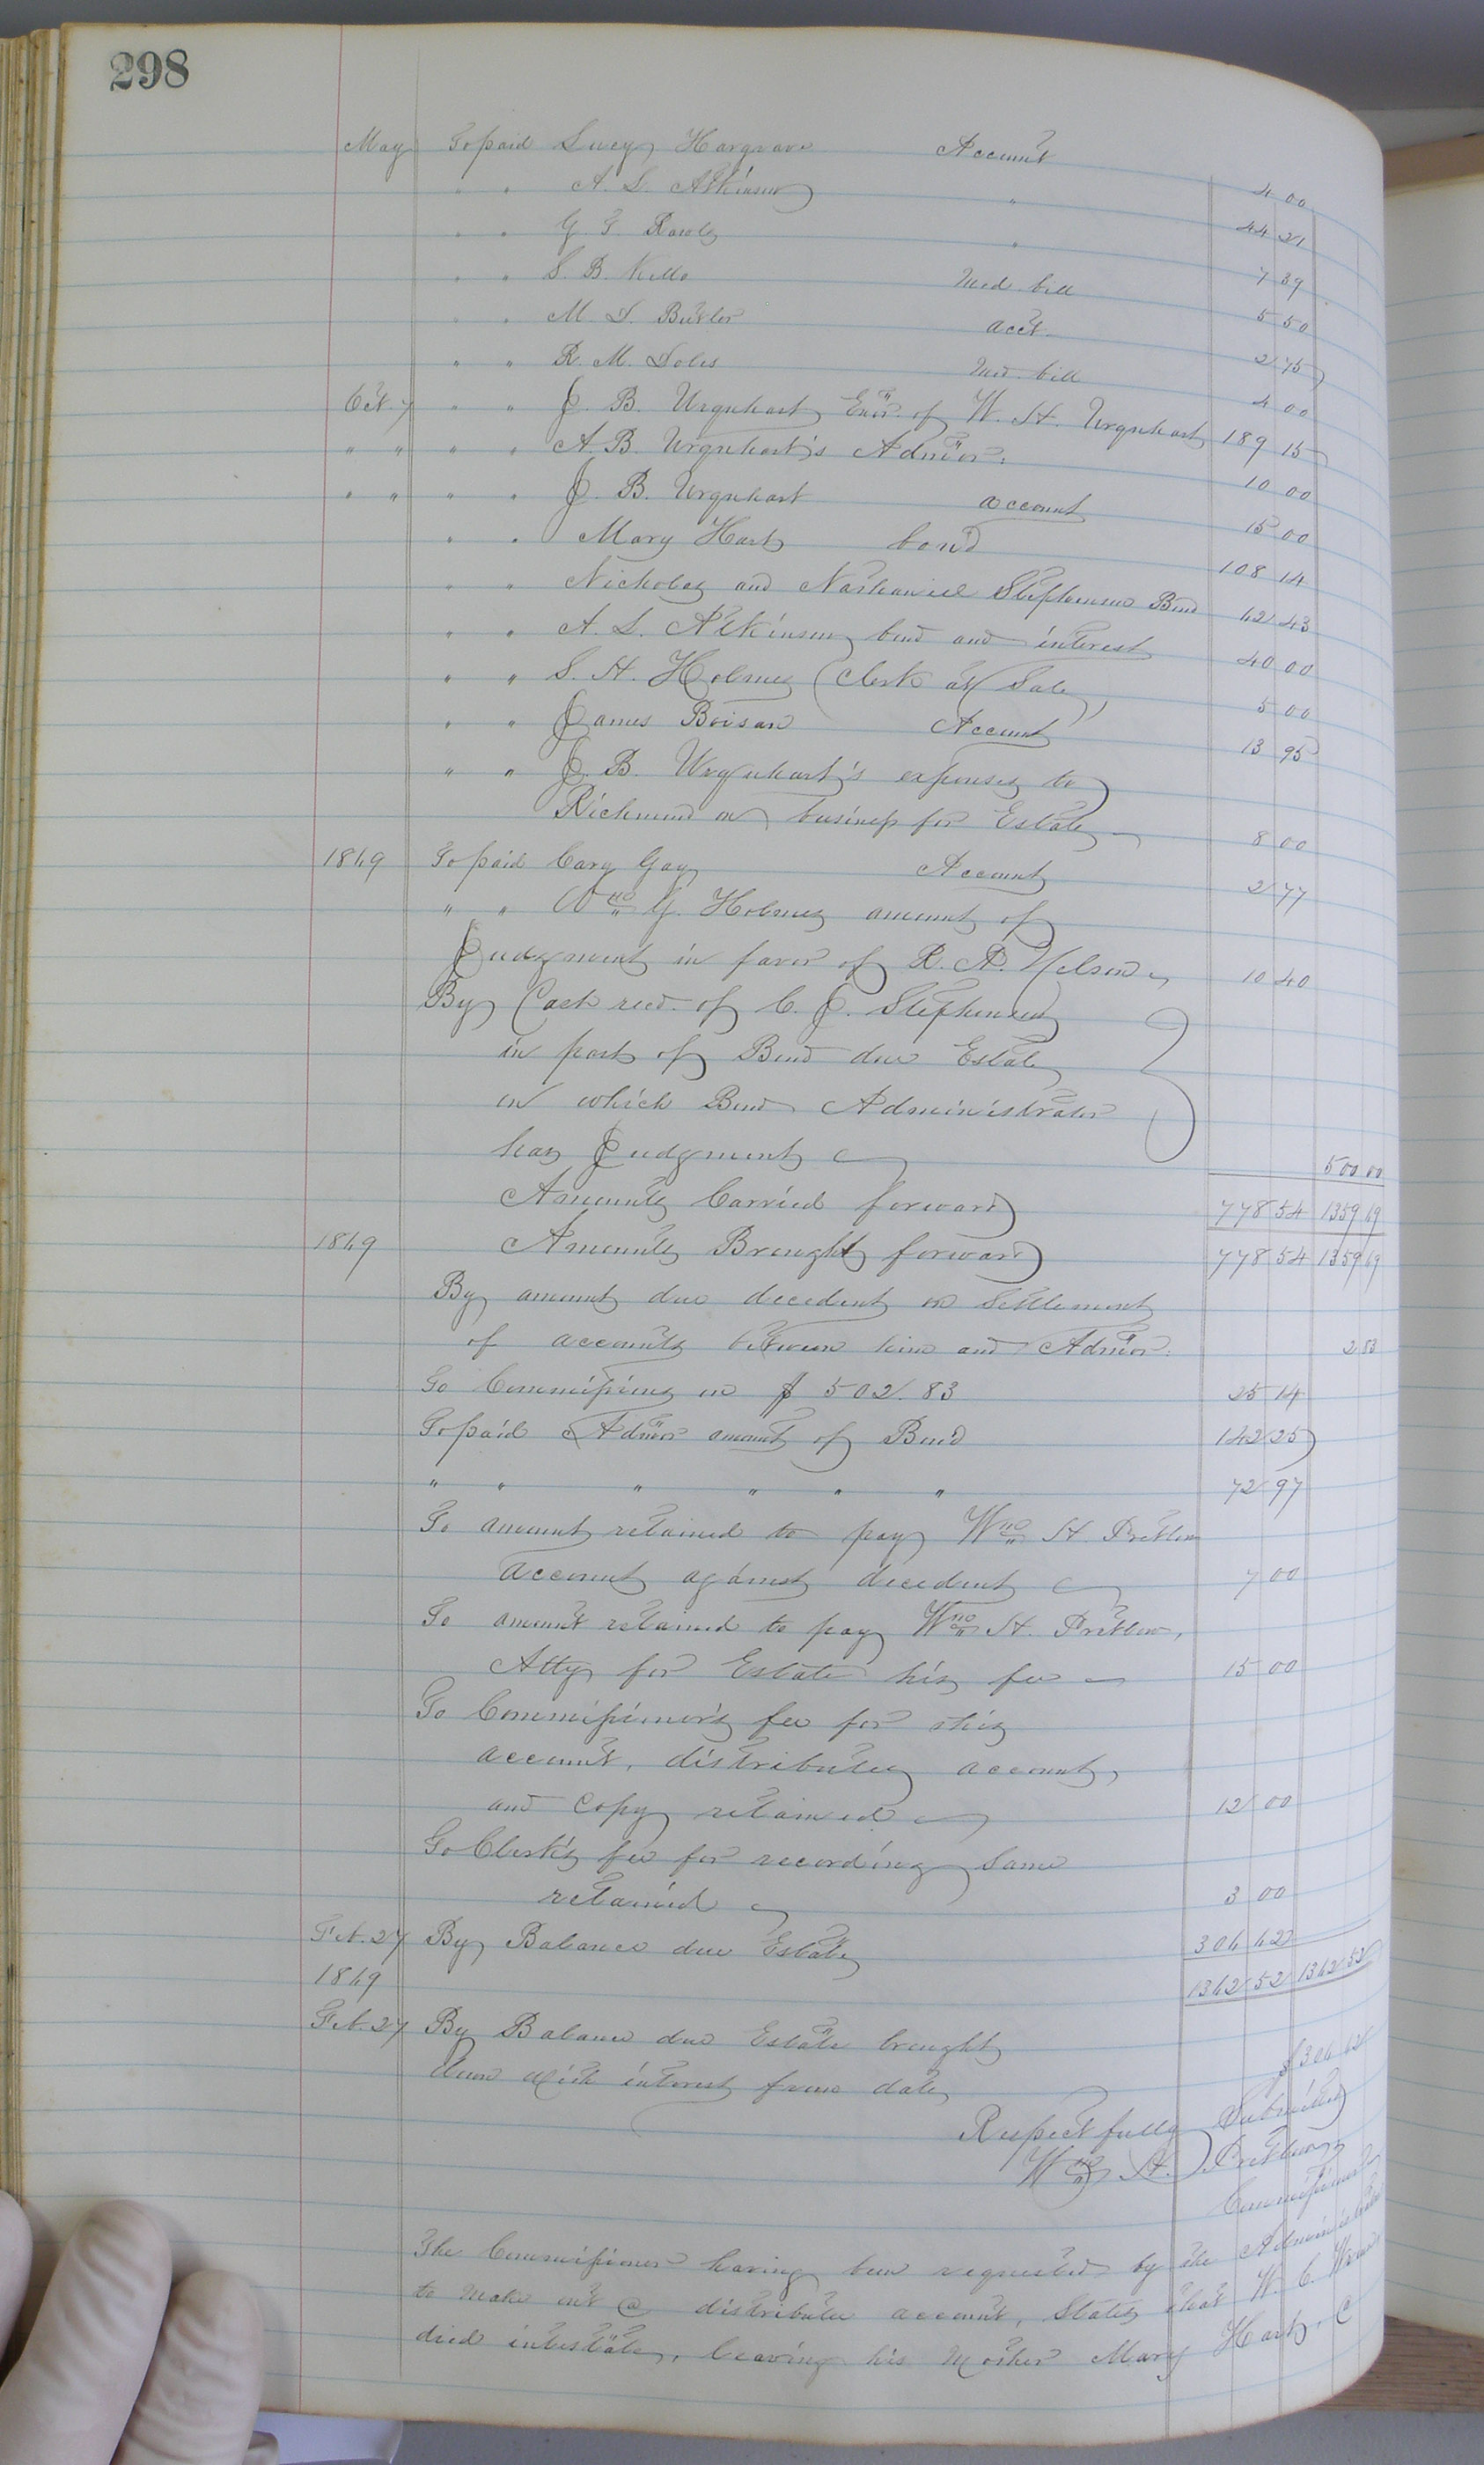 298
May To paid Lucy Hargrave Account 4 00
" " A. L. Atkinson " 44 21
" " G T. Rawls " 7 39
" " S. B. Kello Med. bill 5 50
" " M. D. Butler acct. 2 75
" " R. M. Doles Med. bill 4 00
Oct. 7 " " J. B. Urquhart Exor. of W. H. Urquhart 189 15
" " " " A. B. Urquhart's Admor. 10 00
" " " " J. B. Urquhart account 15 00
" " Mary Hart bond 108 14
" " Nicholas and Nathaniel Stephenson Bond 62 43
" " A. L. Atkinson bond and interest 40 00
" " S. H. Holmes (Clerk at Sale) 5 00
" " James Boisan Account 13 95
" " J. B. Urquhart's expenses to
Richmond on business for Estate 8 00
1869 To paid Cary Gay Account 2 77
" " Wm G. Holmes amount of
Judgment in favor of R. A. Nelson 10 40
By Cash recd. of C. J. Stephenson
in part of Bond due Estate
on which Bond Administrator
has Judgment 500 00
Amounts Carried forward 778 54 1359 69
1869 Amounts Brought forward 778 54 1359 69
By amount due decedent on Settlement
of accounts between him and Admor. 2 83
To Commissions on $ 502.83 25 14
To paid Admor amount of Bond 142 25
" " " " " " 72 97
To amount retained to pay Wm H. Pretlow
account against decedent 7 00
To amount retained to pay Wm H. Pretlow,
Atty for Estate his fee 15 00
To Commissioner's fee for this
account, distributee account,
and Copy retained 12 00
To Clerk's fee for recording same
retained 3 00
Feb. 27 By Balance due Estate 306 62
1869 1362 52 1362 52
Feb. 27 By Balance due Estate brought
down with interest from date $306 62
Respectfully Submitted
Wm H. Pretlow
Commissioner
The Commissioner having been requested by the Administrator
to make out a distributee account, States that W. C.
died intestate, leaving his Mother Mary Hart,